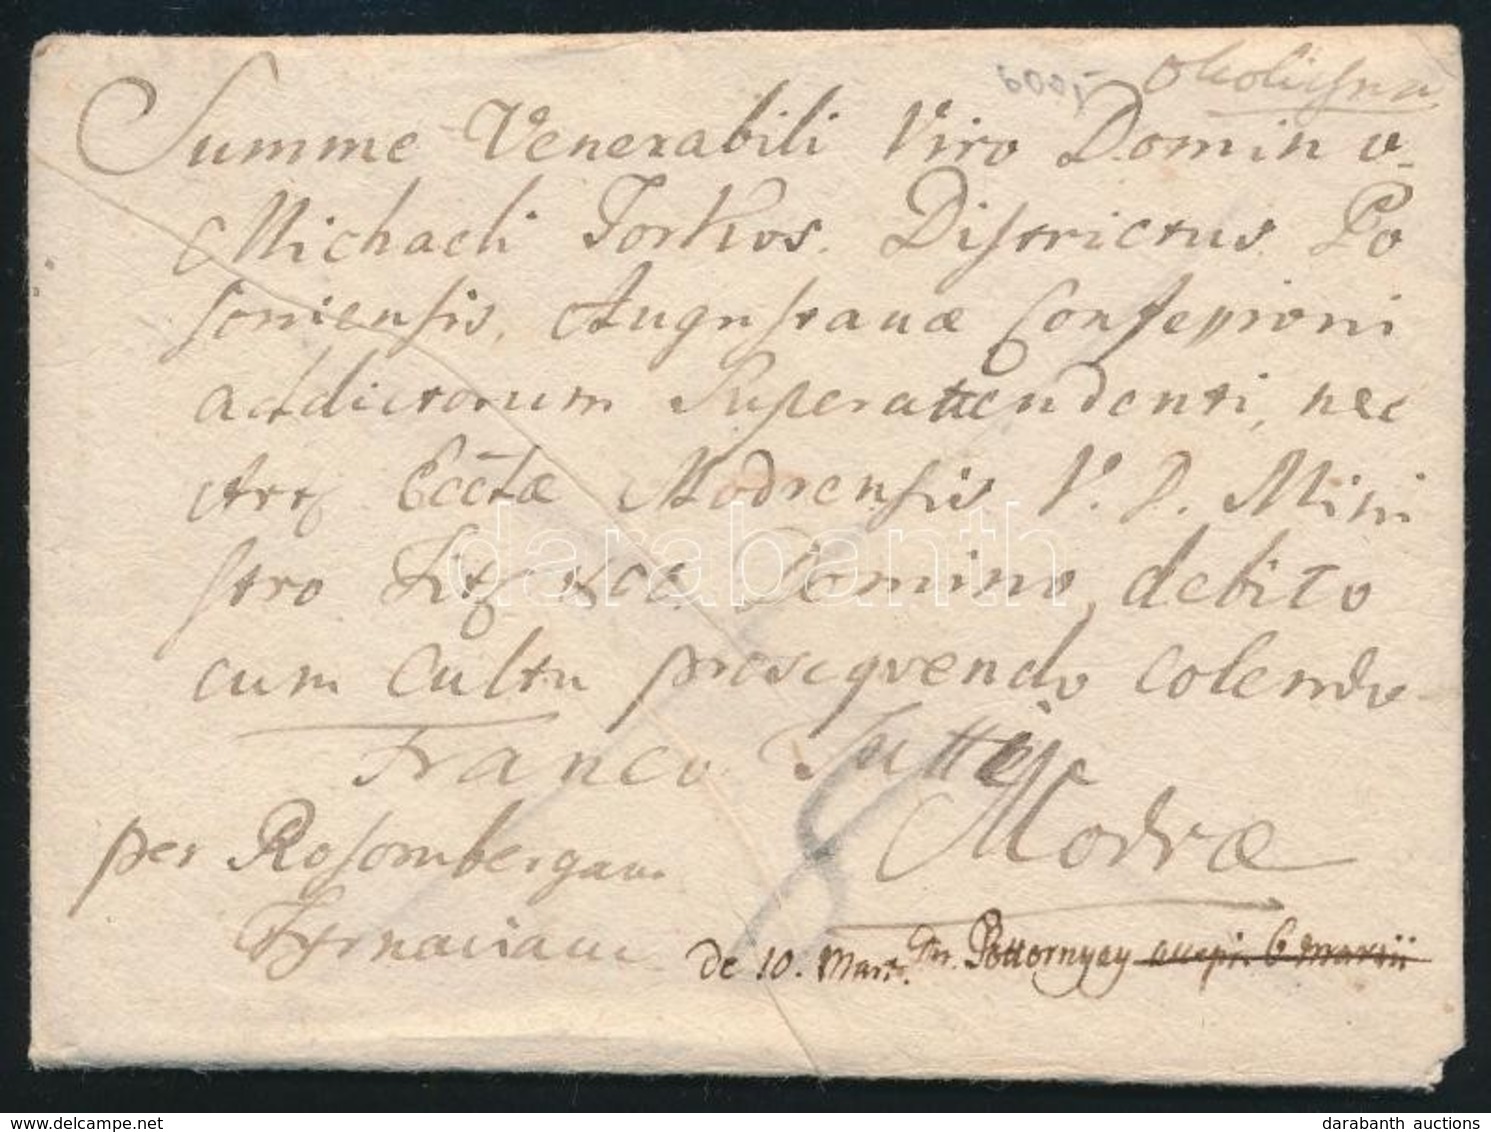 600,- Okolicsna
Summe Venerabili Viro Domino
Michaeli Torkos. Districtus Po
soniensis, Augustanæ Confessioni
addictorum Superattendenti, nec
Eccłæ Modrensis V. D. Mini
stro Domino, debito
cum cultu prosequendo colendo
Franco Sutté
Modræ
8
per Rosombergam
Tyrnaviam
de 10. Mart. Dn. Pottornyay accepi. 6 martii
darabanth
www.delcampe.net
darabanth auctions